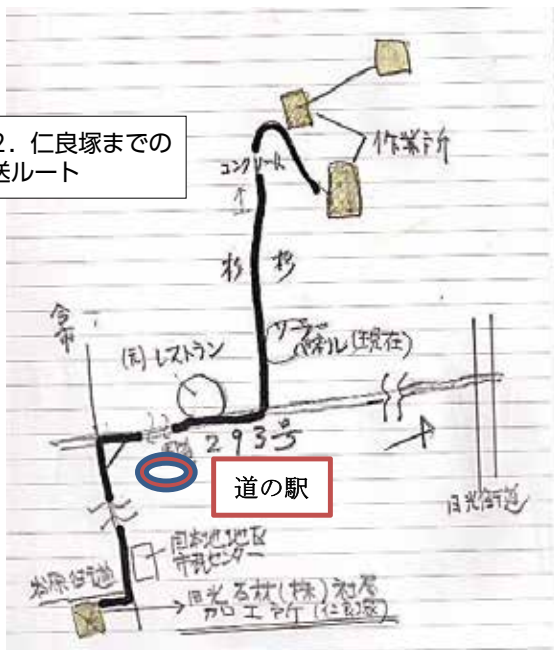 2. 仁良塚までの
送ルート
作業所
コンクリート
杉 杉
今市
(元)レストラン
ソーラー
パネル(現在)
293号
道の駅
日光街道
市民センター
日光石材(株)
加工所(仁良塚)